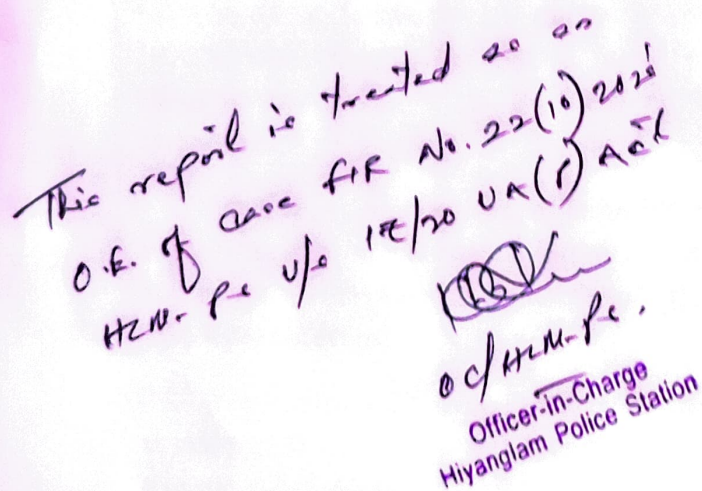 This report is treated as an
O.E. of case FIR No. 22(10)202
HLM-PS U/S 20 UA(P) Act
O/C HLM-PS.
Officer-in-Charge
Hiyanglam Police Station